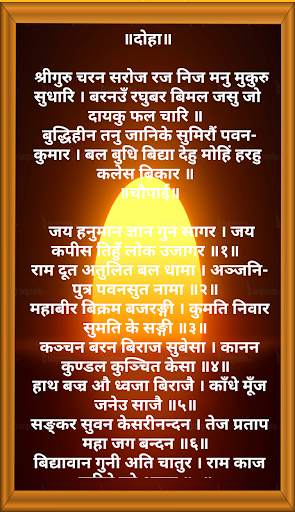 ॥दोहा॥
श्रीगुरु चरन सरोज रज निज मनु मुकुरु
सुधारि । बरनउँ रघुबर बिमल जसु जो
दायकु फल चारि ॥
बुद्धिहीन तनु जानिके सुमिरौं पवन-
कुमार । बल बुधि बिद्या देहु मोहिं हरहु
कलेस बिकार ॥
॥चौपाई॥
जय हनुमान ज्ञान गुन सागर । जय
कपीस तिहुँ लोक उजागर ॥१॥
राम दूत अतुलित बल धामा । अञ्जनि-
पुत्र पवनसुत नामा ॥२॥
महाबीर बिक्रम बजरङ्गी । कुमति निवार
सुमति के सङ्गी ॥३॥
कञ्चन बरन बिराज सुबेसा । कानन
कुण्डल कुञ्चित केसा ॥४॥
हाथ बज्र औ ध्वजा बिराजै । काँधे मूँज
जनेउ साजै ॥५॥
सङ्कर सुवन केसरीनन्दन । तेज प्रताप
महा जग बन्दन ॥६॥
बिद्यावान गुनी अति चातुर । राम काज